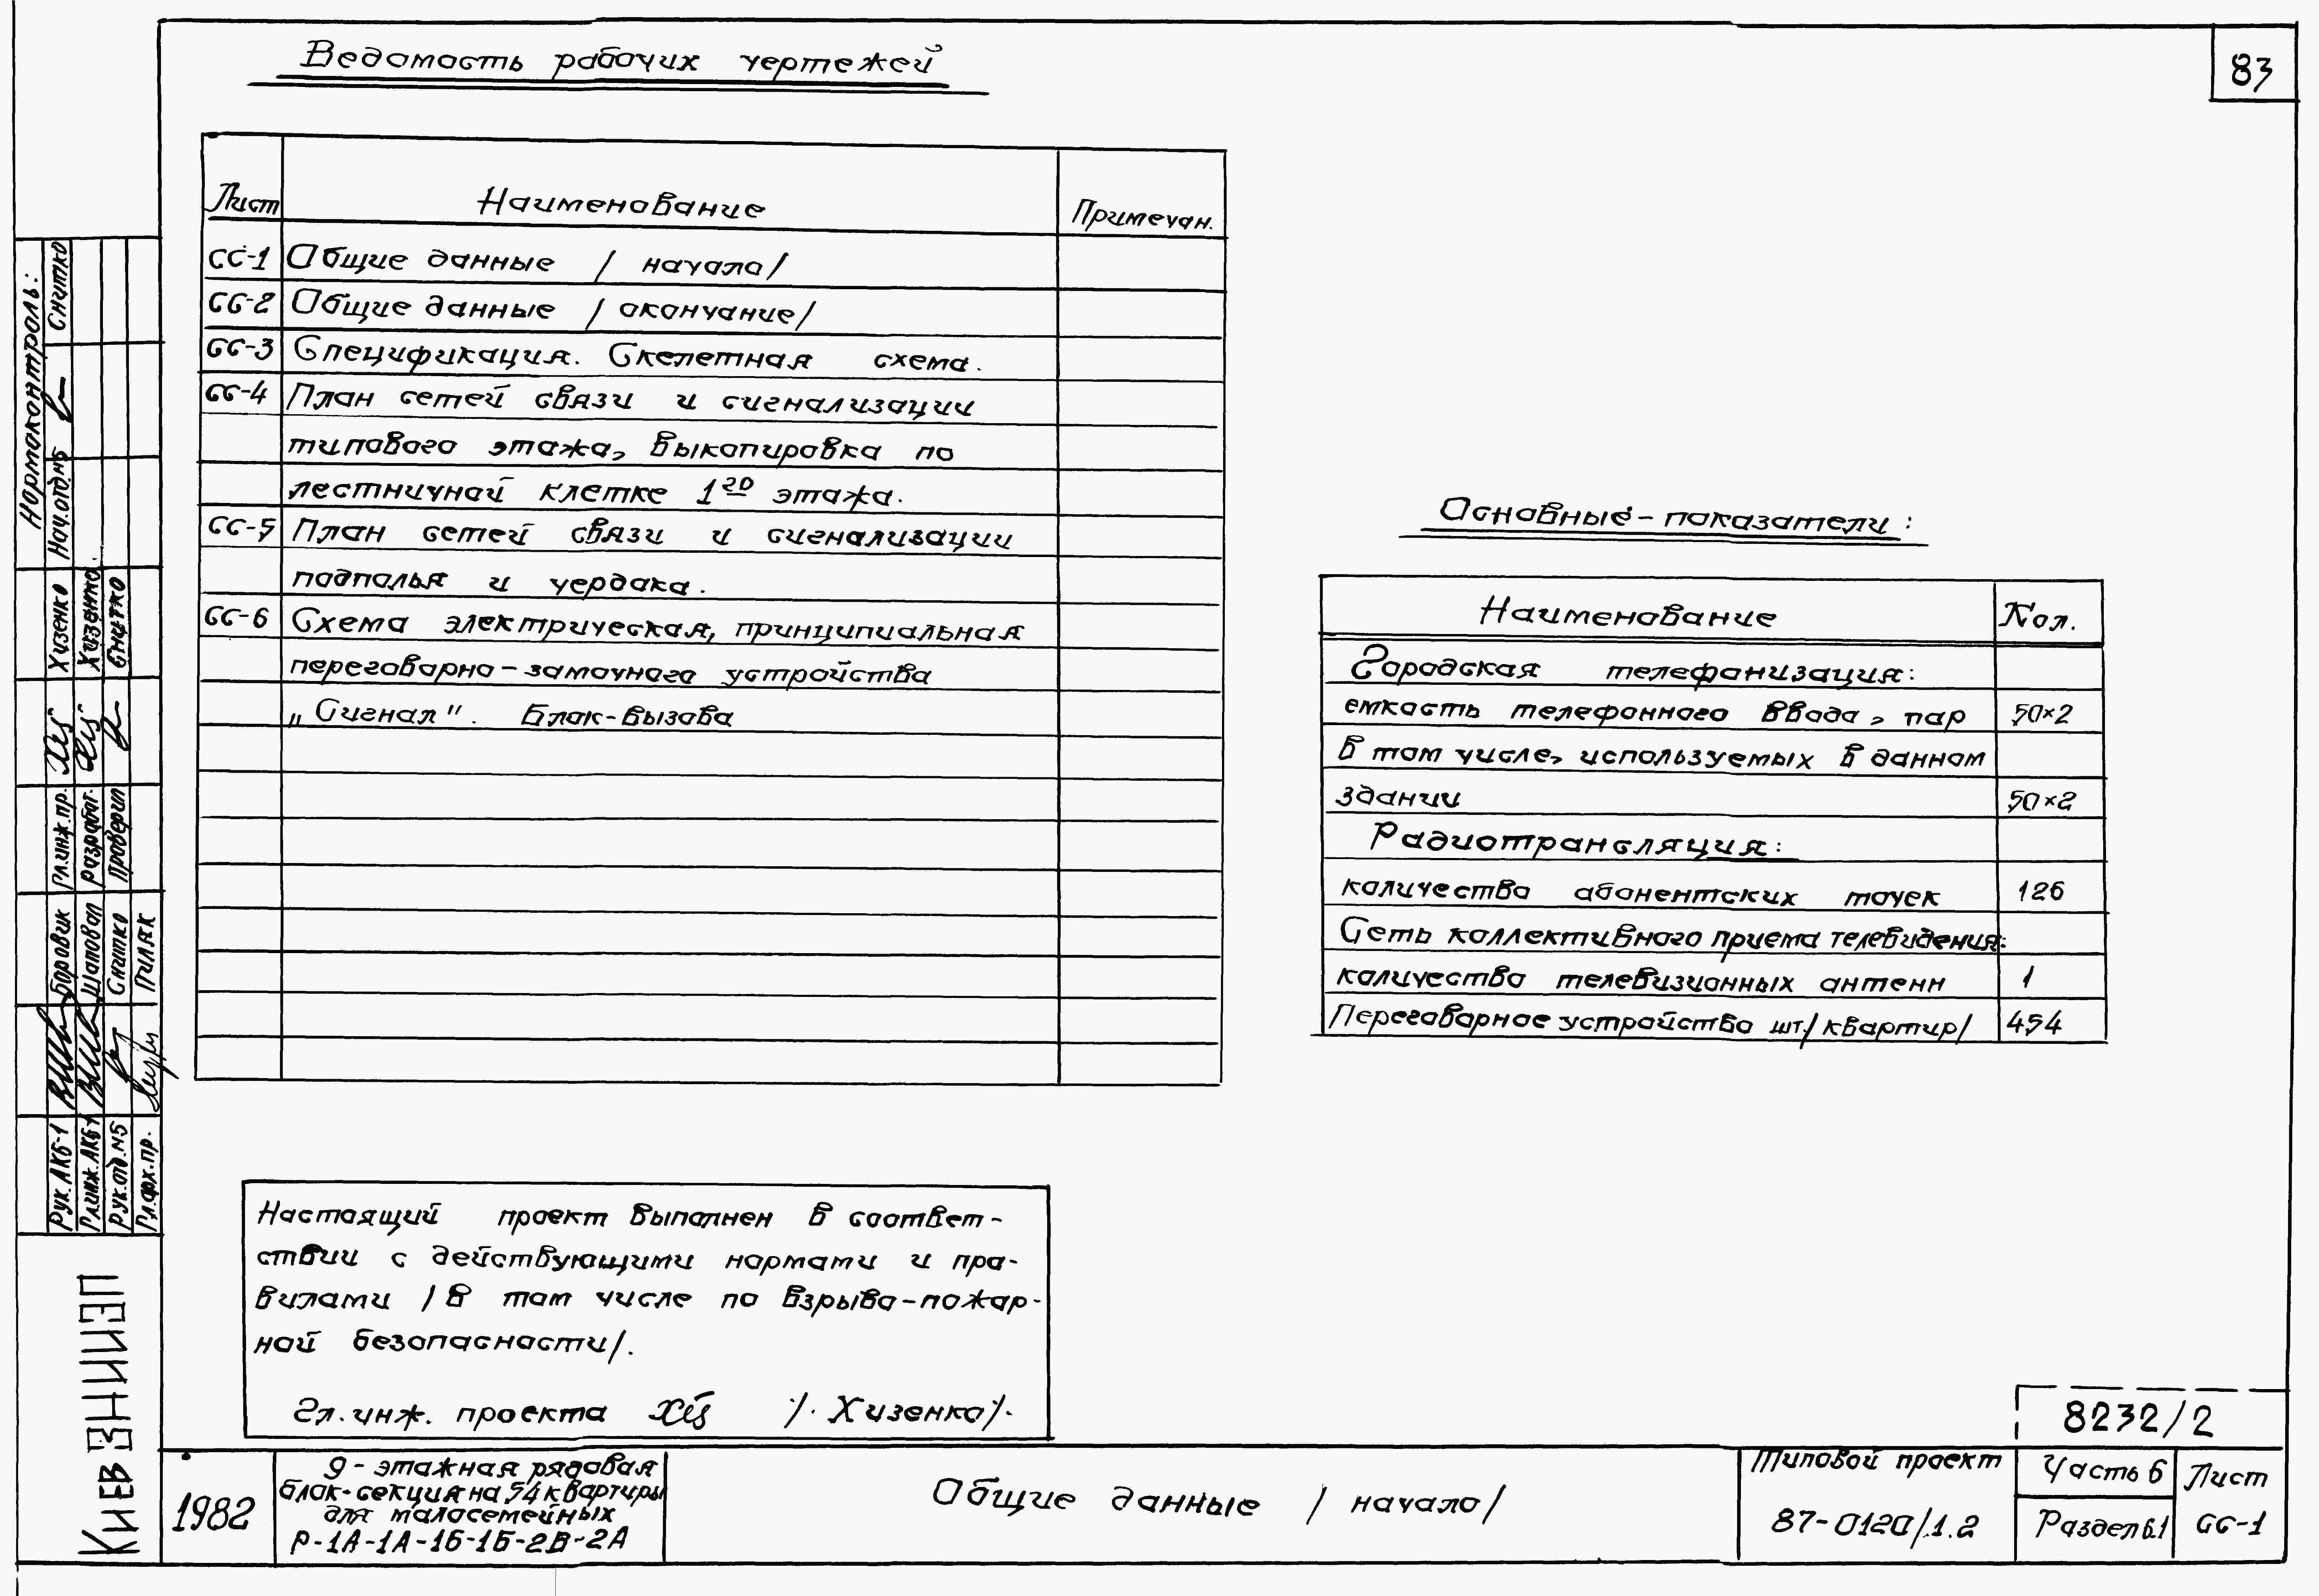 Ведомость рабочих чертежей
83
Лист Наименование Примечан.
СС-1 Общие данные / начало/
СС-2 Общие данные / окончание/
СС-3 Спецификация. Скелетная схема.
СС-4 План сетей связи и сигнализации
типового этажа, выкопировка по
лестничной клетке 1го этажа.
СС-5 План сетей связи и сигнализации
подполья и чердака.
СС-6 Схема электрическая, принципиальная
переговорно-замочного устройства
„Сигнал". Блок-вызова
Основные-показатели:
Наименование Кол.
Городская телефонизация:
емкость телефонного ввода, пар 50×2
В том числе, используемых в данном
здании 50×2
Радиотрансляция:
количество абонентских точек 126
Сеть коллективного приема телевидения:
количество телевизионных антенн 1
Переговорное устройство шт./квартир/ 454
Настоящий проект выполнен в соответ-
ствии с действующими нормами и пра-
вилами /в том числе по взрыво-пожар-
ной безопасности/.
Гл. инж. проекта /. Хизенко/.
8232/2
1982
9-этажная рядовая
блок-секция на 54 квартиры
для малосемейных
Р-1А-1А-1Б-1Б-2В-2А
Общие данные / начало/
Типовой проект
87-0120/.1.2
Часть 6
Раздел 6.1
Лист
СС-1
Нормоконтроль:
Нач.отд.№5 Снитко
Гл.инж.пр. Хизенко
разработ. Хизенко
Проверил Снитко
Рук. АКБ-1 Боровик
Гл.инж.АКБ-1 Шаповал
Рук.отд.№5 Снитко
Гл.арх.пр. Гиляк
Киев ЗНИИЭП